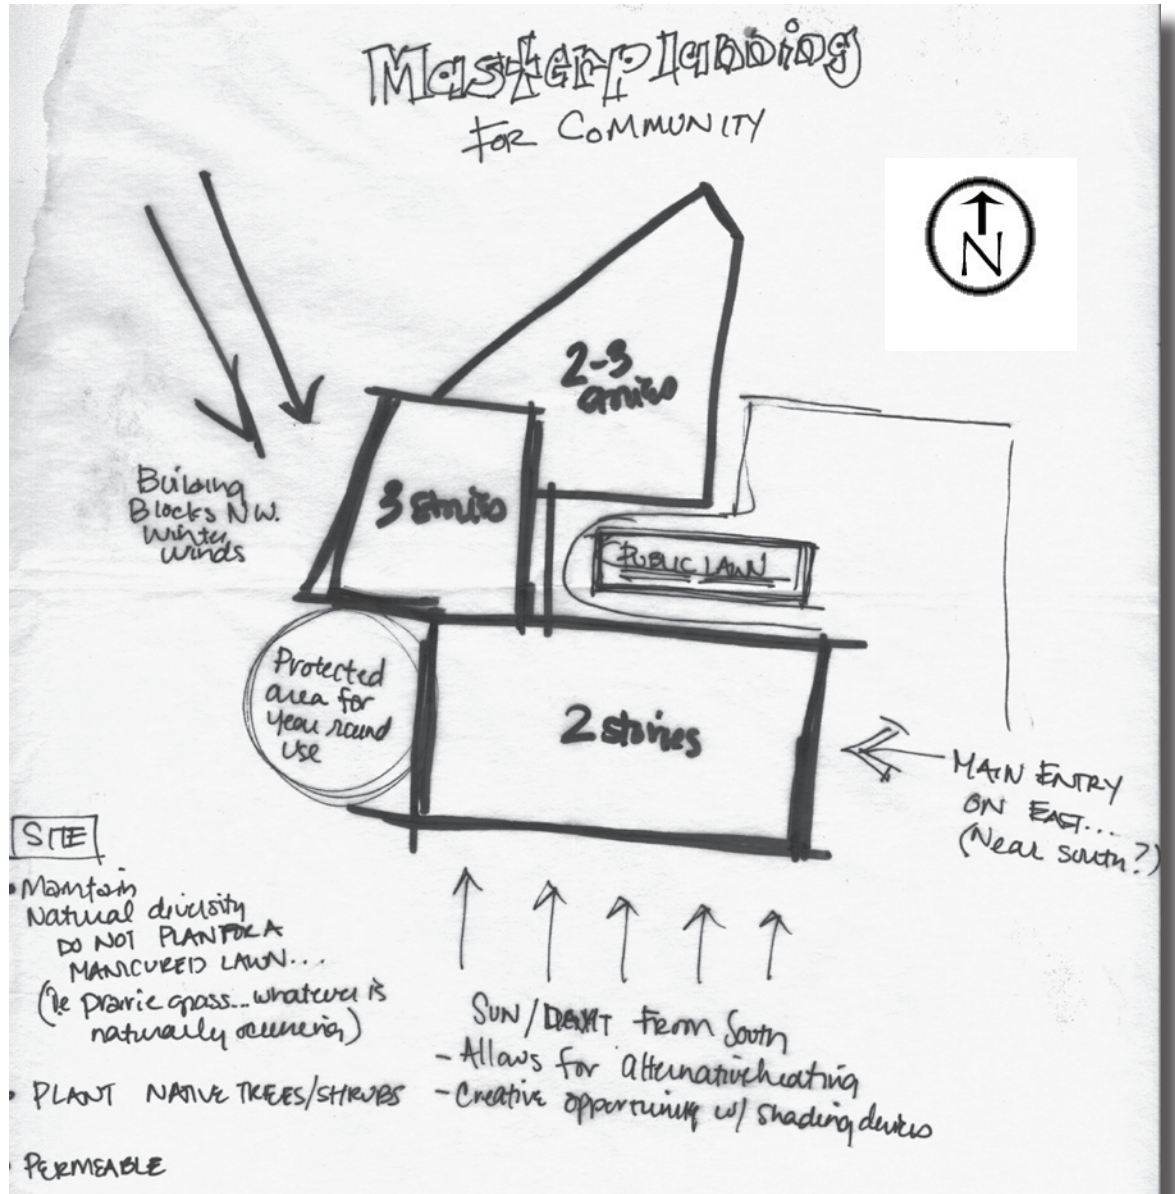 Masterplanning
FOR COMMUNITY
N
2-3
stories
Building
Blocks N.W.
Winter
winds
3 stories
PUBLIC LAWN
Protected
area for
year round
use
2 stories
MAIN ENTRY
ON EAST...
(Near South?)
SITE
• Maintain
Natural diversity
DO NOT PLAN FOR A
MANICURED LAWN...
(ie prairie grass... whatever is
naturally occurring)
• PLANT NATIVE TREES/SHRUBS
• PERMEABLE
SUN/ FROM South
- Allows for alternative heating
- Creative opportunity w/ shading devices